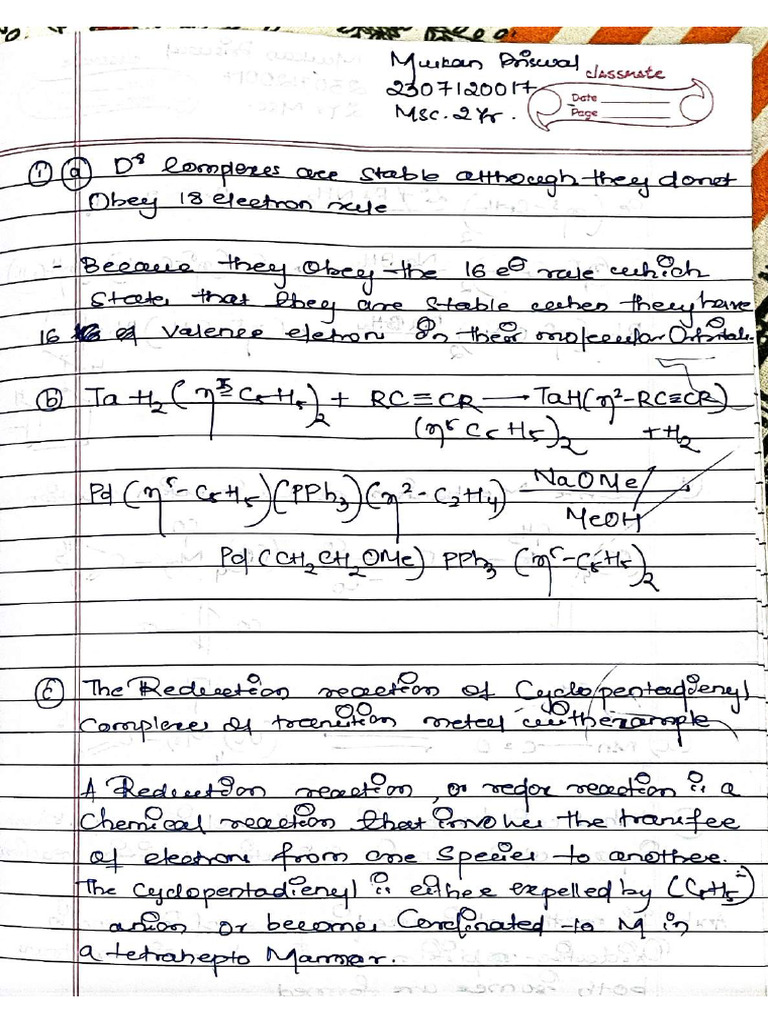 Muskan Priswal
classmate
2307120017
Date
Msc. 2 Yr.
Page
① ⓐ D⁸ Complexes are stable although they donot
Obey 18 electron rule
- Because they Obey the 16 e⊖ rule which
States that they are stable when they have
16 valence eletron in their molecular Orbitals.
ⓑ TaH₂(η⁵-C₅H₅)₂ + RC≡CR → TaH(η²-RC≡CR)
(η⁵C₅H₅)₂ + H₂
Pd(η⁵-C₅H₅)(PPh₃)(η²-C₂H₄) NaOMe/
MeOH
Pd(CH₂CH₂OMe) PPh₃ (η⁵-C₅H₅)₂
ⓒ The Reduction reaction of Cyclopentadienyl
Complexes of transition metal with example
A Reduction reaction, or redox reaction is a
Chemical reaction that involves the transfer
of electrons from one species to another.
The Cyclopentadienyl is either expelled by (C₅H₅⁻)
anion or becomes Cordinated to M in
a tetrahepto Mannar.